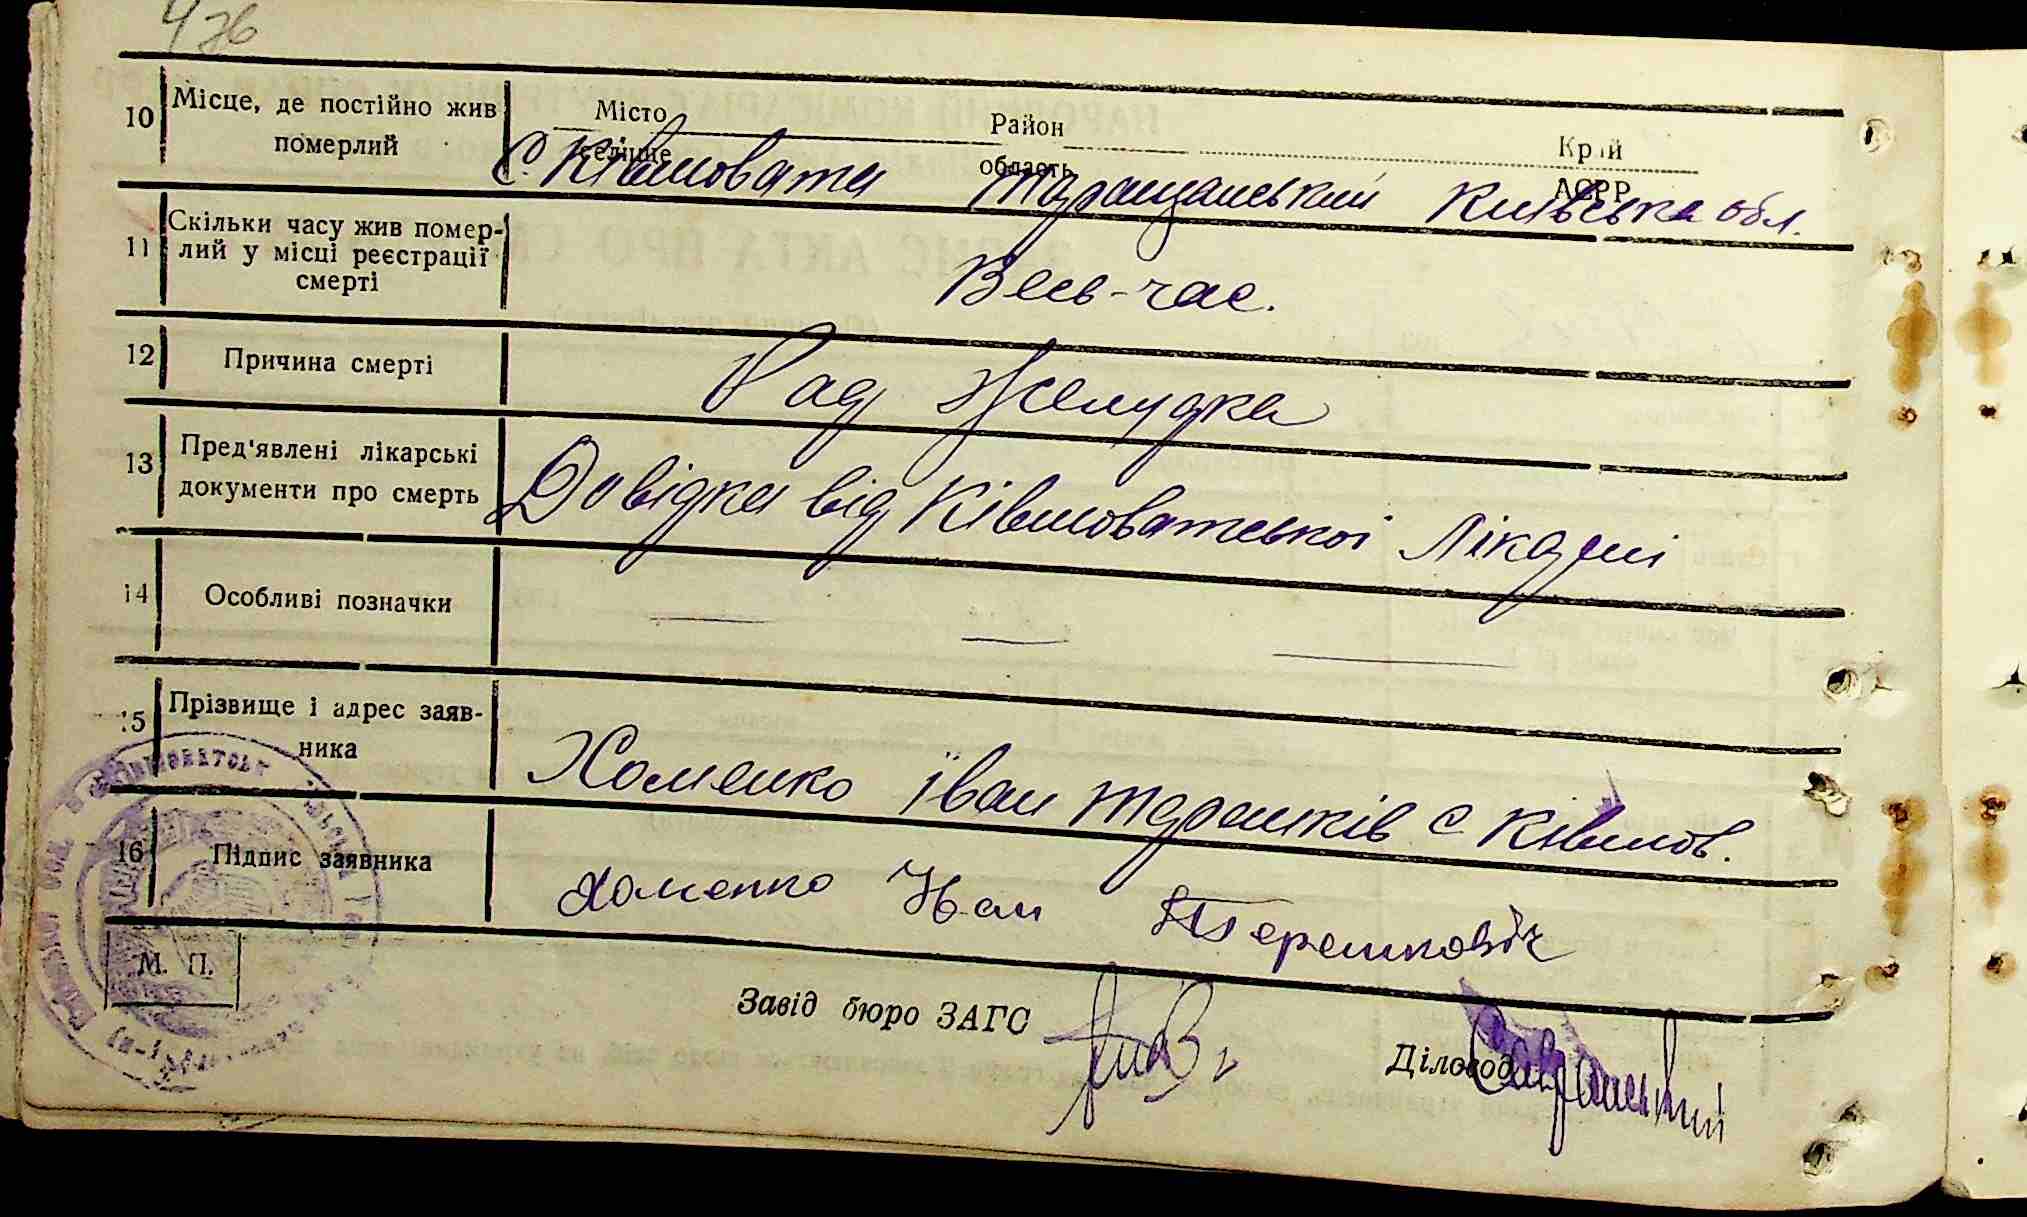 476
10 Місце, де постійно жив померлий
Місто селище Район область Край АСРР
С. Ківшовата Таращанський Київська обл.
11 Скільки часу жив помер-
лий у місці реєстрації
смерті
Весь-час.
12 Причина смерті
Рад Желудка
13 Пред'явлені лікарські
документи про смерть
Довідка від Ківшоватської Лікарні
14 Особливі позначки
15 Прізвище і адрес заяв-
ника
Хоменко Іван Терешків с Ківшов.
16 Підпис заявника
Хоменко Иван Терешковіч
М. П.
Завід бюро ЗАГС
Діловод